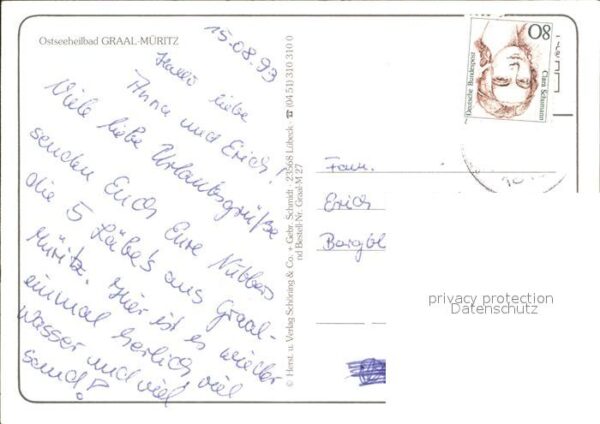 Ostseeheilbad GRAAL-MÜRITZ
15.08.93
Hallo liebe
Anna und Erich!
Viele liebe Urlaubsgrüße
senden Euch Eure
die 5 aus Graal-
Müritz. Hier ist es wieder
einmal herlich viel
Wasser und viel
Sand!
© Herst. u. Verlag Schöning & Co. + Gebr. Schmidt · 23568 Lübeck · ☎ (04 51) 310 310 0
nd Bestell-Nr. Graal-M 27
80
Deutsche Bundespost
Clara Schumann
Fam.
Erich
privacy protection
Datenschutz